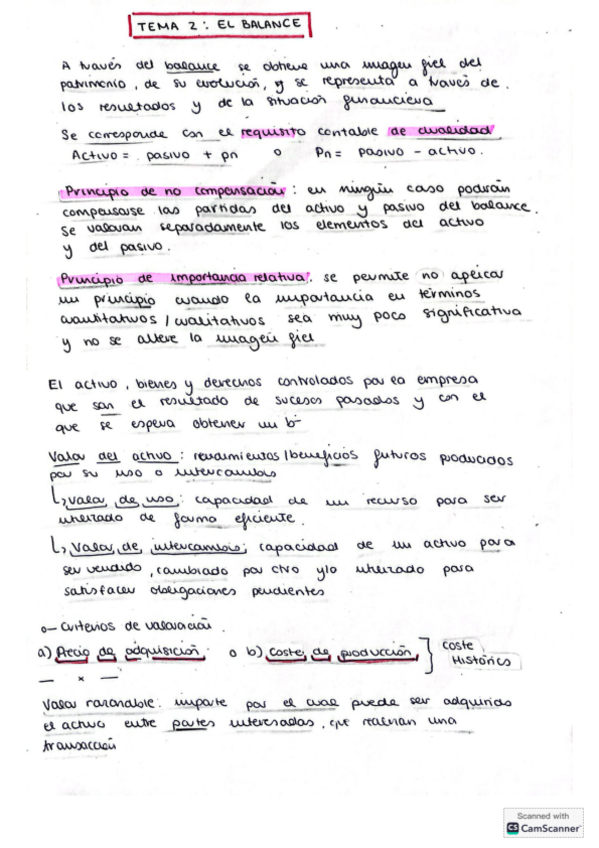 TEMA 2: EL BALANCE
A través del balance se obtiene una imagen fiel del
patrimonio, de su evolución, y se representa a través de
los resultados y de la situación financiera
Se corresponde con el requisito contable de dualidad
Activo = pasivo + pn o Pn = pasivo - activo.
Principio de no compensación: en ningún caso podrán
compensarse las partidas del activo y pasivo del balance.
Se valoran separadamente los elementos del activo
y del pasivo.
Principio de importancia relativa, se permite no aplicar
un principio cuando la importancia en términos
cuantitativos / cualitativos sea muy poco significativa
y no se altere la imagen fiel
El activo, bienes y derechos controlados por la empresa
que son el resultado de sucesos pasados y con el
que se espera obtener un b-
Valor del activo: rendimientos/beneficios futuros producidos
por su uso o intercambio
↳ valor de uso: capacidad de un recurso para ser
utilizado de forma eficiente.
↳ Valor de intercambio: capacidad de un activo para
ser vendido, cambiado por otro y/o utilizado para
satisfacer obligaciones pendientes
o— Criterios de valoración.
a) Precio de adquisición o b) Coste de producción } coste Histórico
— x —
Valor razonable: importe por el cual puede ser adquirido
el activo entre partes interesadas, que realizan una
transacción
Scanned with
CS CamScanner